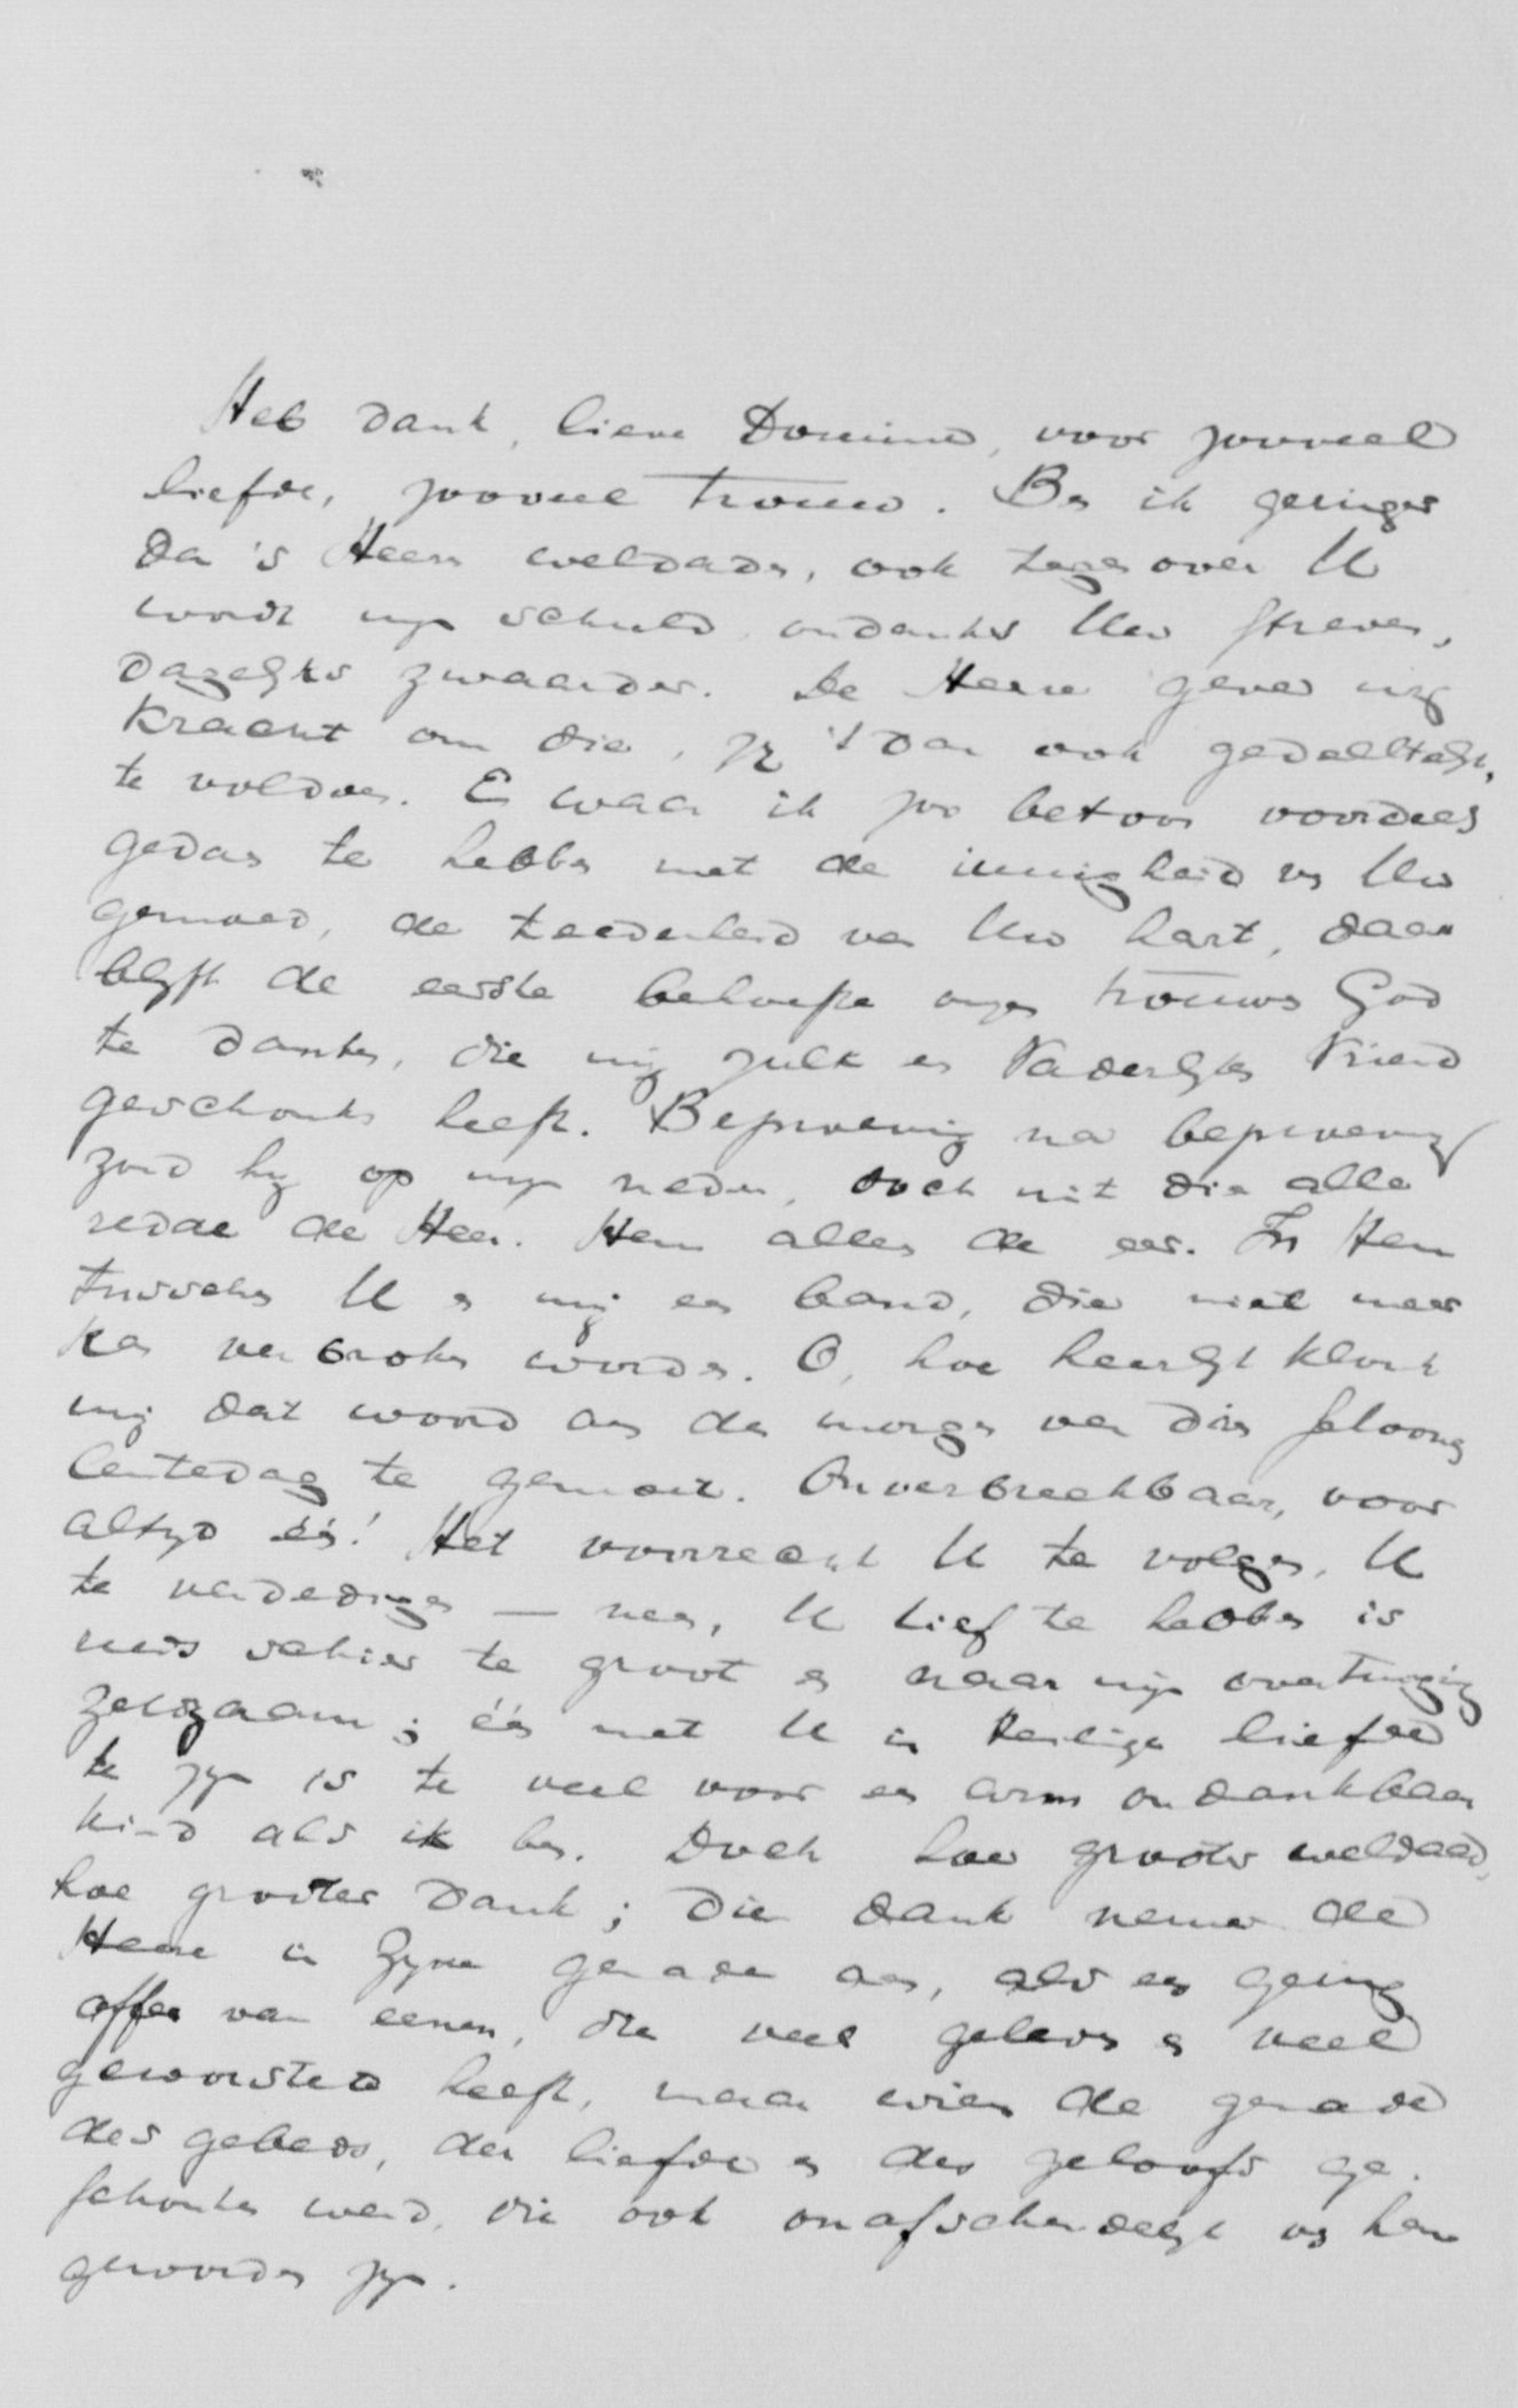 Heb dank, lieve Dominé, voor zooveel
liefde, zooveel trouw. Ben ik geringer
dan 's Heeren weldaden, ook tegenover U
wordt mijn schuld, ondanks Uw streven,
dagelijks zwaarder. De Heere geve mij
kracht om die, zij 't dan ook gedeeltelijk,
te voldoen. En waar ik zoo betoon voordeel
gedaan te hebben met de innigheid van Uw
gemoed, de teederheid van Uw hart, daar
blijft de eerste behoefte onzen trouwen God
te danken, die mij zulk een Vaderlijken Vriend
geschonken heeft. Beproeving na beproeving
zond hij op mijn neder, doch uit die alle
redde de Heer. Hem alleen de eer. In Hem
tusschen U en mij een band, die niet meer
kan verbroken worden. O, hoe heerlijk klonk
mij dat woord aan den morgen van dien
lentedag te gemoet. Onverbreekbaar, voor
altijd één! Het voorrecht U te volgen, U
te verdedigen — neen, U lief te hebben is
reeds schier te groot en naar mijn overtuiging
zeldzaam; één met U in heilige liefde
te zijn is te veel voor een arm ondankbaar
kind als ik ben. Doch hoe grooter weldaad,
hoe grooter dank; die dank neme de
Heere in Zijne genade aan, als een gering
offer van eenen, die veel geleden en veel
geworsteld heeft, maar wien de genade
des gebeds, der liefde en des geloofs ge-
schonken werd, die ook onafscheidelijk van hem
geworden zijn.